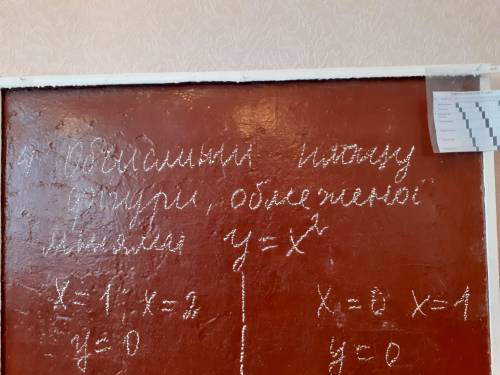 Обчислити площу
фігури, обмеженої
лініями y = x²
x = 1; x = 2
y = 0
x = 0 x = 1
y = 0